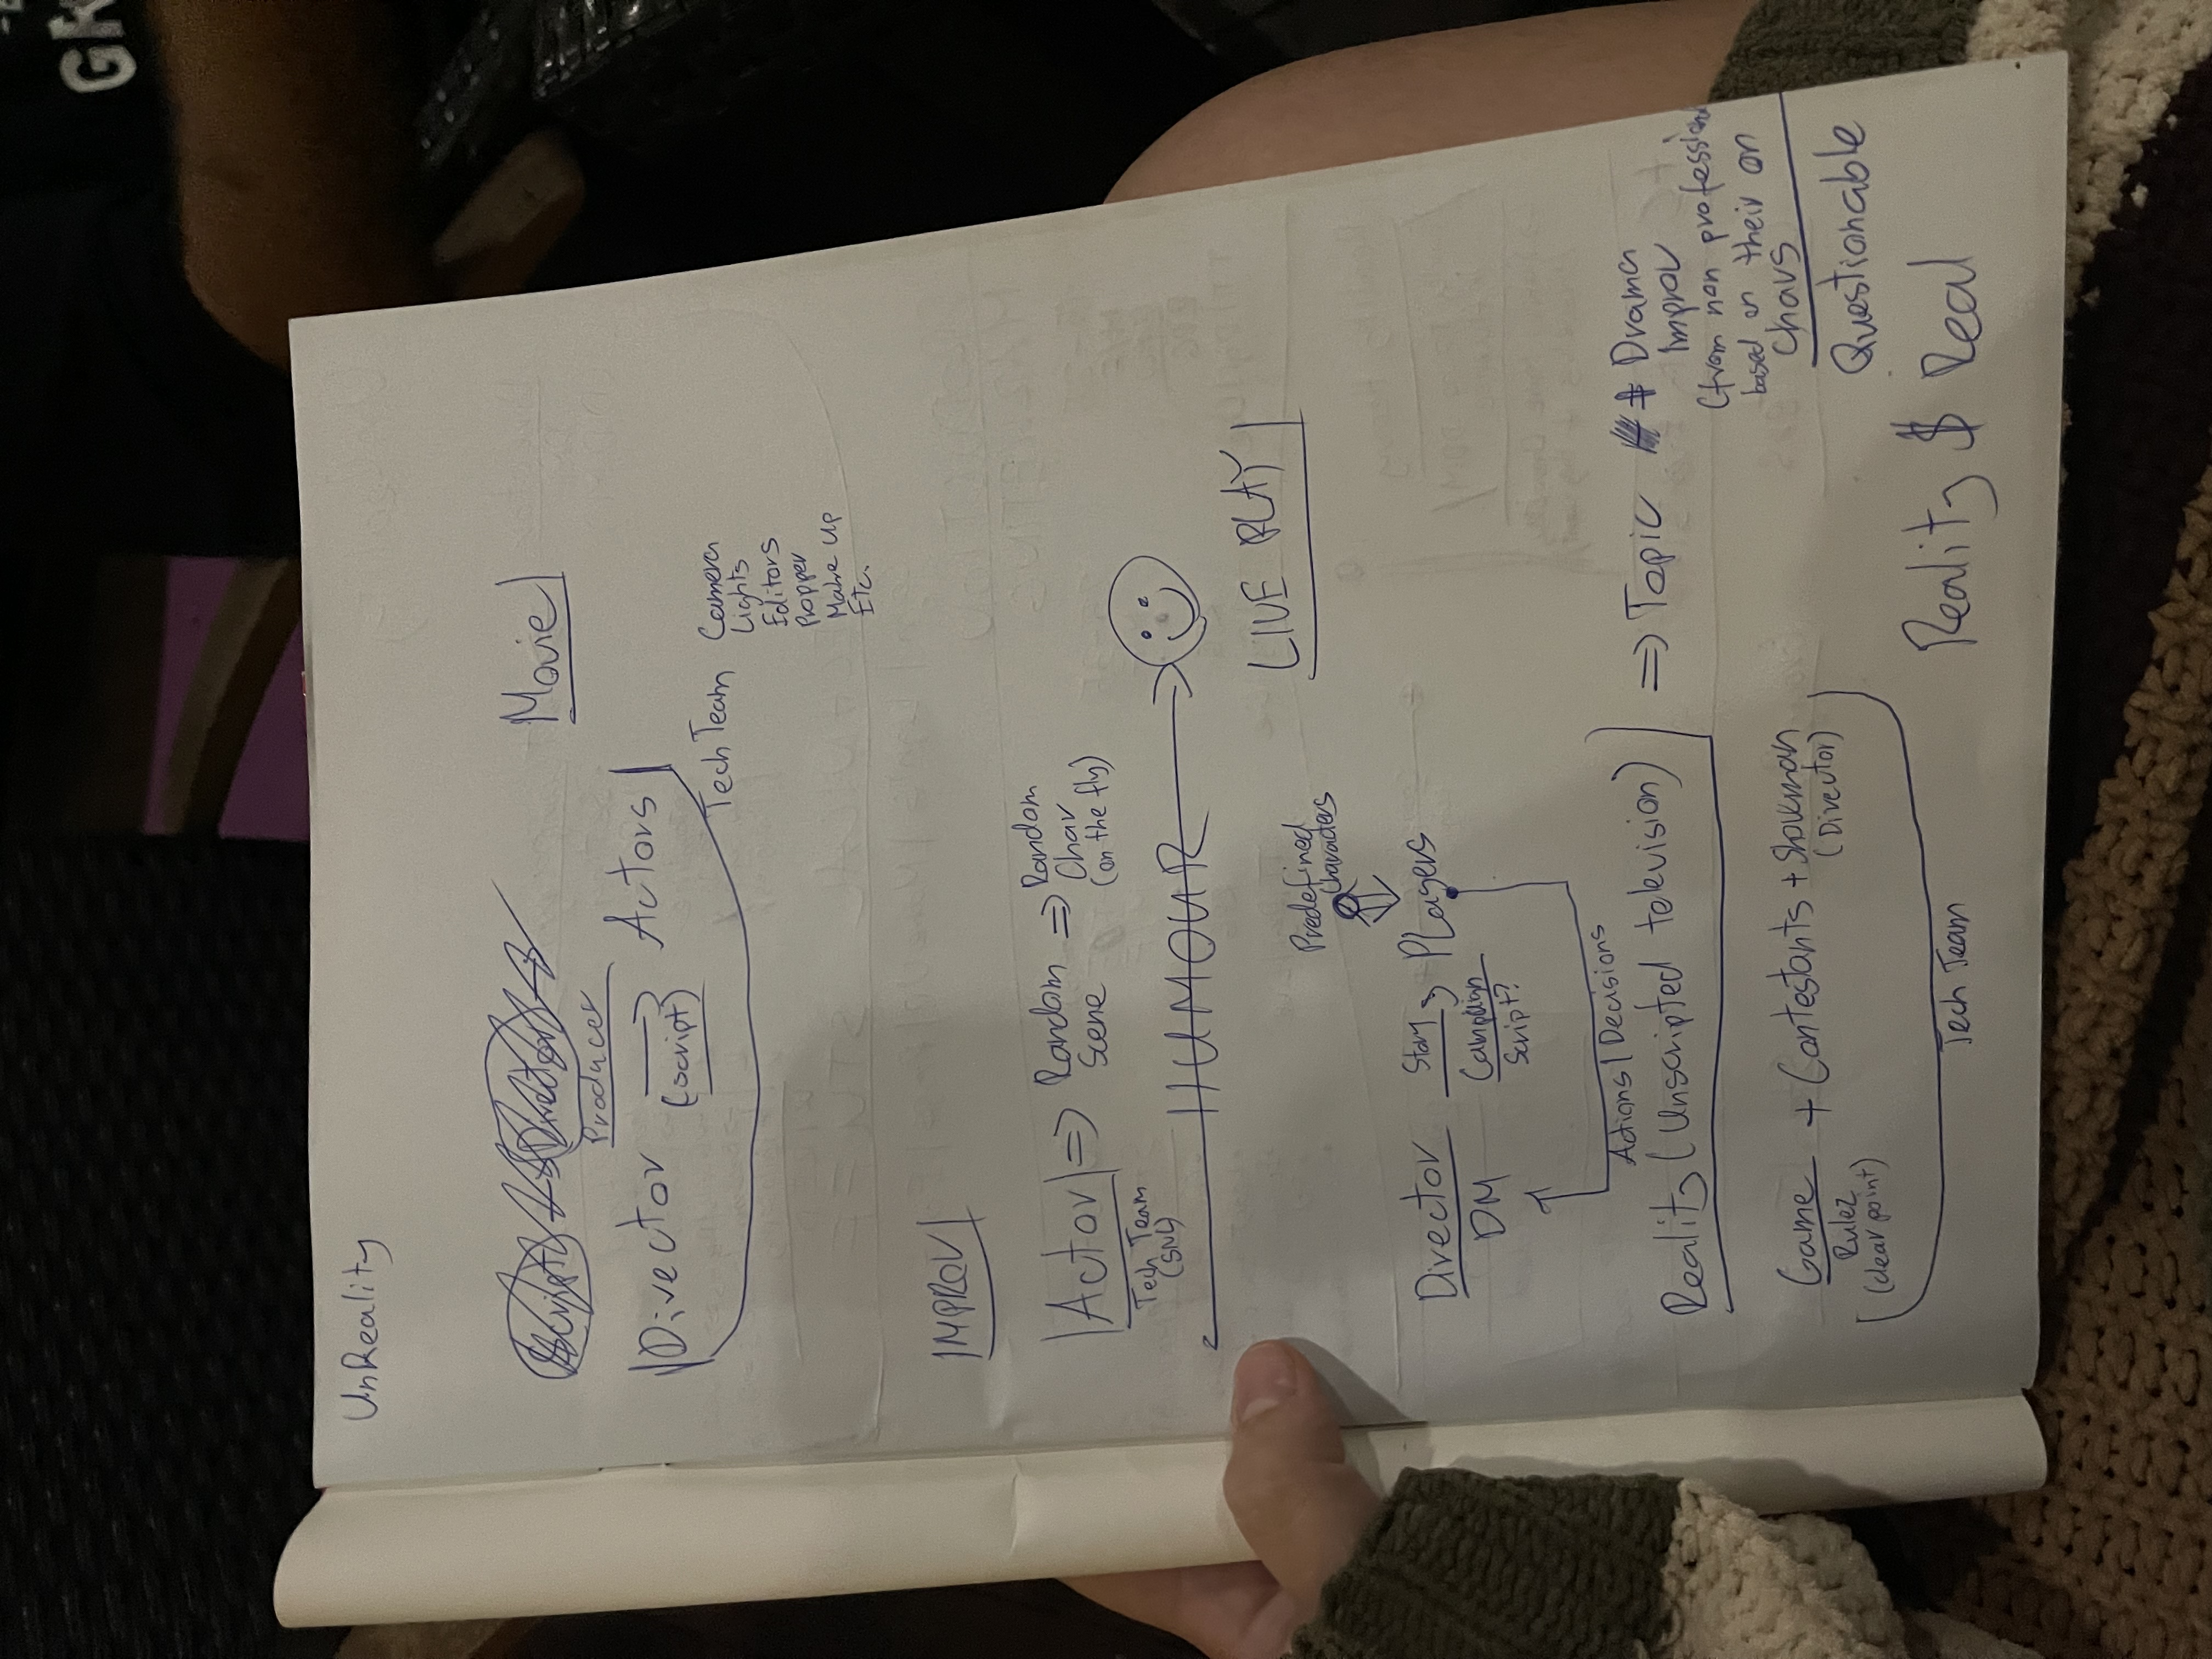 UnReality
Script Director
Movie
Producer
Director → Actors
(script)
Tech Team Camera
Lights
Editors
Propper
Make Up
Etc.
IMPROV
Actor ⇒ Random Scene ⇒ Random Char (on the fly)
Tech Team
(SNL)
HUMOUR
LIVE PLAY
Predefined
Characters
Director Story → PLayers
DM Campaign
Script?
Actions/Decisions
Reality (Unscripted television) ⇒ Topic $ Drama
Improv
(from non profession
based on their on
Chars
Game + Contestants + Showman
Rulez (Director)
(clear point)
Questionable
Tech Team
Reality $ Real
GR